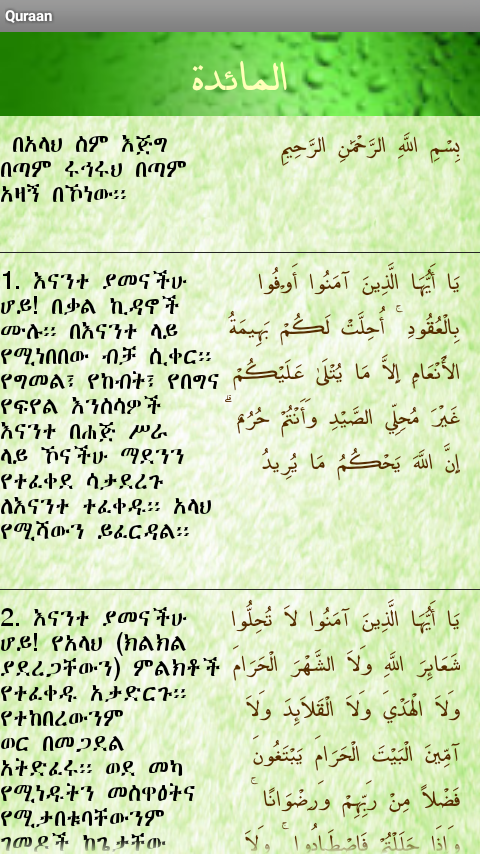 Quraan
المائدة
በአላህ ስም እጅግ
በጣም ሩኅሩህ በጣም
አዛኝ በኾነው፡፡
بِسْمِ اللَّهِ الرَّحْمَٰنِ الرَّحِيمِ
1. እናንተ ያመናችሁ
ሆይ! በቃል ኪዳኖች
ሙሉ፡፡ በእናንተ ላይ
የሚነበበው ብቻ ሲቀር፡፡
የግመል፣ የከብት፣ የበግና
የፍየል እንስሳዎች
እናንተ በሐጅ ሥራ
ላይ ኾናችሁ ማደንን
የተፈቀደ ሳታደረጉ
ለእናንተ ተፈቀዱ፡፡ አላህ
የሚሻውን ይፈርዳል፡፡
يَا أَيُّهَا الَّذِينَ آمَنُوا أَوْفُوا
بِالْعُقُودِ ۚ أُحِلَّتْ لَكُمْ بَهِيمَةُ
الأَنْعَامِ إِلَّا مَا يُتْلَىٰ عَلَيْكُمْ
غَيْرَ مُحِلِّي الصَّيْدِ وَأَنْتُمْ حُرُمٌ ۗ
إِنَّ اللَّهَ يَحْكُمُ مَا يُرِيدُ
2. እናንተ ያመናችሁ
ሆይ! የአላህ (ክልክል
ያደረጋቸውን) ምልክቶች
የተፈቀዱ አታድርጉ፡፡
የተከበረውንም
ወር በመጋደል
አትድፈሩ፡፡ ወደ መካ
የሚነዱትን መስዋዕትና
የሚታበቱባቸውንም
ገመዶች ከጌታቸው
يَا أَيُّهَا الَّذِينَ آمَنُوا لَا تُحِلُّوا
شَعَائِرَ اللَّهِ وَلَا الشَّهْرَ الْحَرَامَ
وَلَا الْهَدْيَ وَلَا الْقَلَائِدَ وَلَا
آمِّينَ الْبَيْتَ الْحَرَامَ يَبْتَغُونَ
فَضْلًا مِنْ رَبِّهِمْ وَرِضْوَانًا ۚ
وَإِذَا حَلَلْتُمْ فَاصْطَادُوا ۚ وَلَا